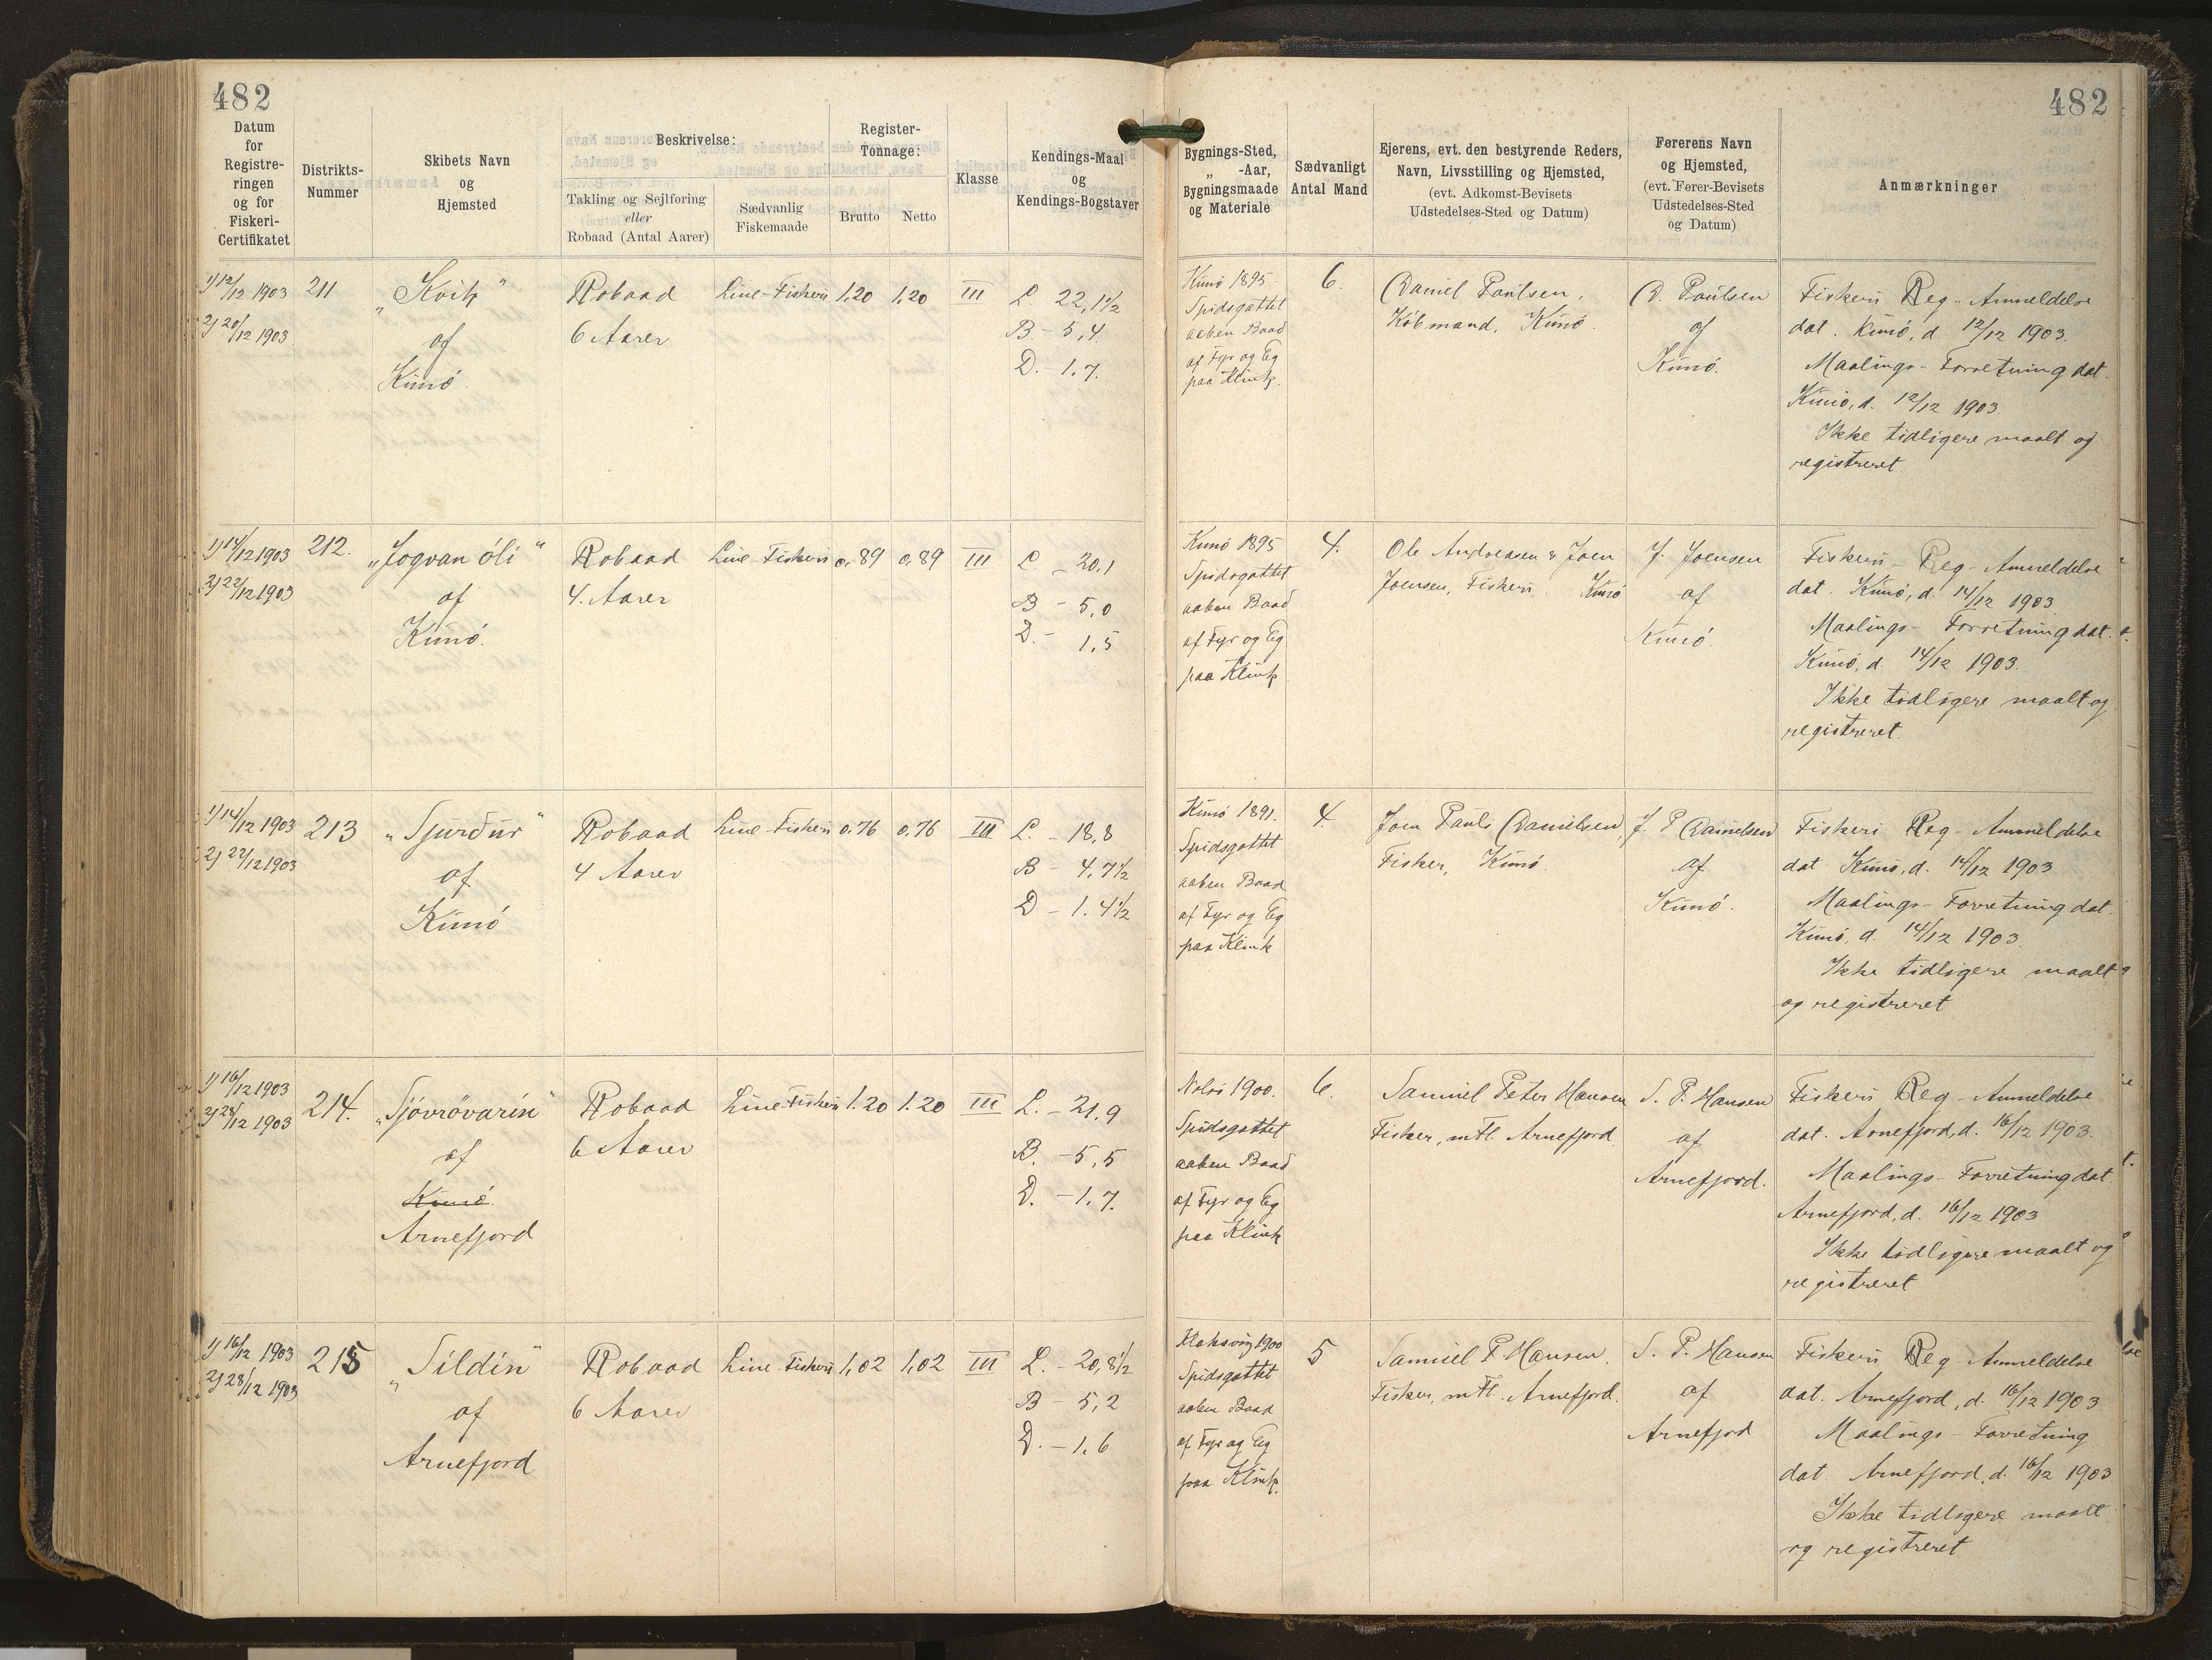 482
482
Datum
for
Registre-
ringen
og for
Fiskeri-
Certifikatet
Distrikts-
Nummer
Skibets Navn
og
Hjemsted
Beskrivelse:
Takling og Sejlføring
eller
Robaad (Antal Aarer)
Sædvanlig
Fiskemaade
Register-
Tonnage:
Brutto
Netto
Klasse
Kendings-Maal
og
Kendings-Bogstaver
Bygnings-Sted,
„ -Aar,
Bygningsmaade
og Materiale
Sædvanligt
Antal Mand
Ejerens, evt. den bestyrende Reders,
Navn, Livsstilling og Hjemsted,
(evt. Adkomst-Bevisets
Udstedelses-Sted og Datum)
Førerens Navn
og Hjemsted,
(evt. Fører-Bevisets
Udstedelses-Sted
og Datum)
Anmærkninger
1) 12/12 1903
2) 20/12 1903
211
„Kvik“
af
Kunö.
Robaad
6 Aarer
Line-Fiskeri
1,20
1,20
III
L. 22,1½
B – 5,4
D. – 1,7.
Kunö 1895
Spidsgattet
aaben Baad
af Fyr og Eg
paa Klink.
6.
Daniel Paulsen,
Købmand, Kunö.
D. Paulsen
af
Kunö.
Fiskeri Reg-Anmeldelse
dat. Kunö, d. 12/12 1903.
Maalings-Forretning dat.
Kunö, d. 12/12 1903.
Ikke tidligere maalt og
registreret.
1) 14/12 1903
2) 22/12 1903
212.
„Jogvan óli“
af
Kunö.
Robaad
4. Aarer
Line-Fiskeri
0,89
0,89
III
L – 20.1
B – 5,0
D. – 1,5
Kunö 1895
Spidsgattet
aaben Baad
af Fyr og Eg
paa Klink
4.
Ole Andreasen & Joen
Joensen, Fiskeri, Kunö
J. Joensen
af
Kunö.
Fiskeri-Reg-Anmeldelse
dat. Kunö, d. 14/12 1903
Maalings-Forretning dat.
Kunö, d. 14/12 1903.
Ikke tidligere maalt og
registreret.
1) 14/12 1903
2) 22/12 1903
213
„Sjurdur“
af
Kunö
Robaad
4 Aarer
Line-Fiskeri
0.76
0,76
III
L. – 18,8
B – 4,7½
D – 1.4½
Kunö 1891.
Spidsgattet
aaben Baad
af Fyr og Eg
paa Klink
4.
Joen Pauli Danielsen
Fisker, Kunö.
J. P Danielsen
af
Kunö.
Fiskeri Reg-Anmeldelse
dat Kunö, d. 14/12 1903
Maalings-Forretning dat.
Kunö, d. 14/12 1903.
Ikke tidligere maalt
og registreret
1) 16/12 1903
2) 28/12 1903
214.
„Sjóvróvarin“
af
Kunö.
Arnefjord
Robaad
6 Aarer
Line-Fiskeri
1.20
1.20
III
L. – 21,9
B. – 5,5
D. – 1,7.
Nolsö 1900.
Spidsgattet
aaben Baad
af Fyr og Eg
paa Klink
6.
Samuel Peter Hansen
Fisker, mfl. Arnefjord.
S. P. Hansen
af
Arnefjord.
Fiskeri Reg-Anmeldelse
dat. Arnefjord, d. 16/12 1903.
Maalings-Forretning dat.
Arnefjord, d. 16/12 1903
Ikke tidligere maalt og
registreret
1) 16/12 1903
2) 28/12 1903
215
„Sildin“
af
Arnefjord
Robaad
6 Aarer
Line-Fiskeri
1,02
1,02
III
L. – 20,8½
B – 5,2
D. – 1,6
Klaksvig 1900
Spidsgattet
aaben Baad
af Fyr og Eg
paa Klink.
5
Samuel P Hansen,
Fisker, mfl. Arnefjord.
S. P. Hansen
af
Arnefjord
Fiskeri Reg-Anmeldelse
dat. Arnefjord, d. 16/12 1903.
Maalings-Forretning
dat. Arnefjord, d. 16/12 1903
Ikke tidligere maalt
og registreret